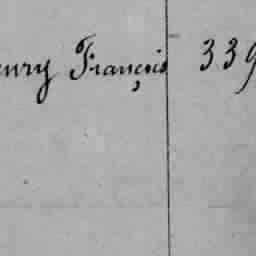 enry François 339